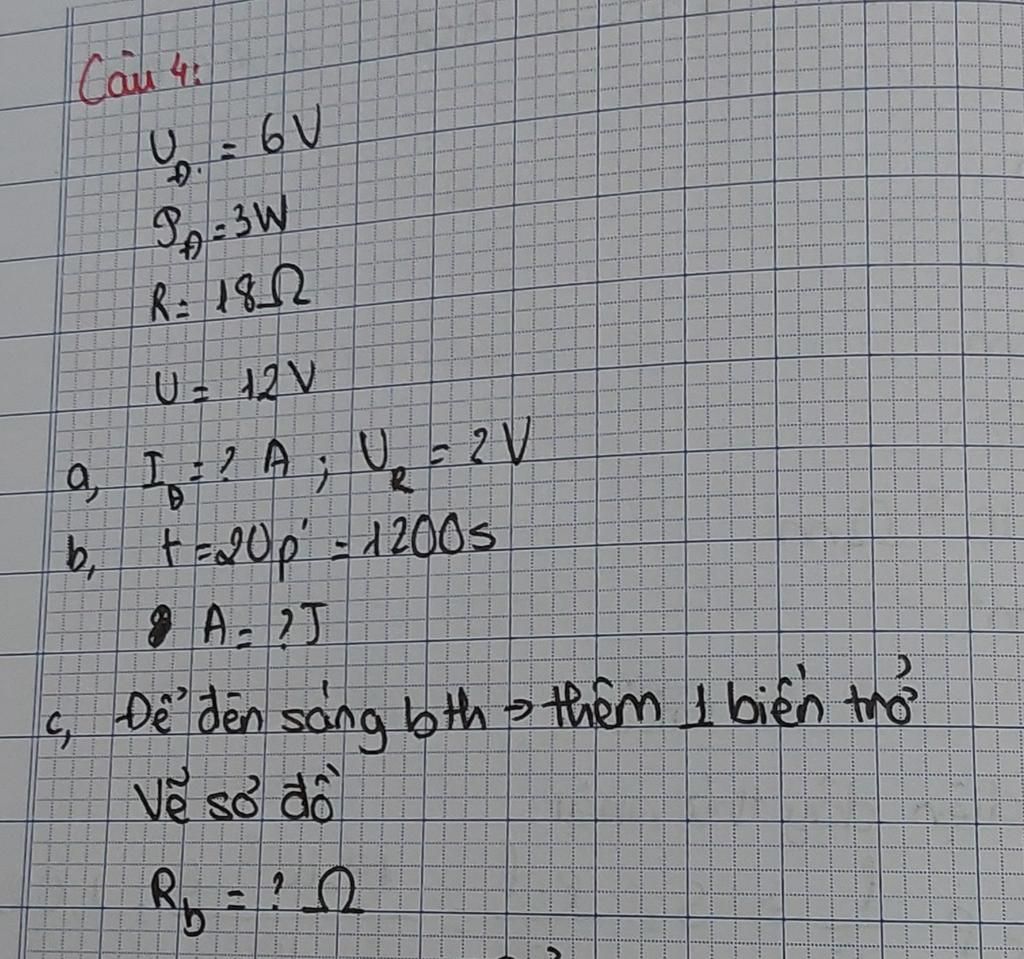 Câu 4:
U_Đ = 6V
P_Đ = 3W
R = 18Ω
U = 12V
a, I_Đ = ? A ; U_R = ? V
b, t = 20p' = 1200s
A = ? J
c, Để đèn sáng bth → thêm 1 biến trở
Vẽ sơ đồ
R_b = ? Ω